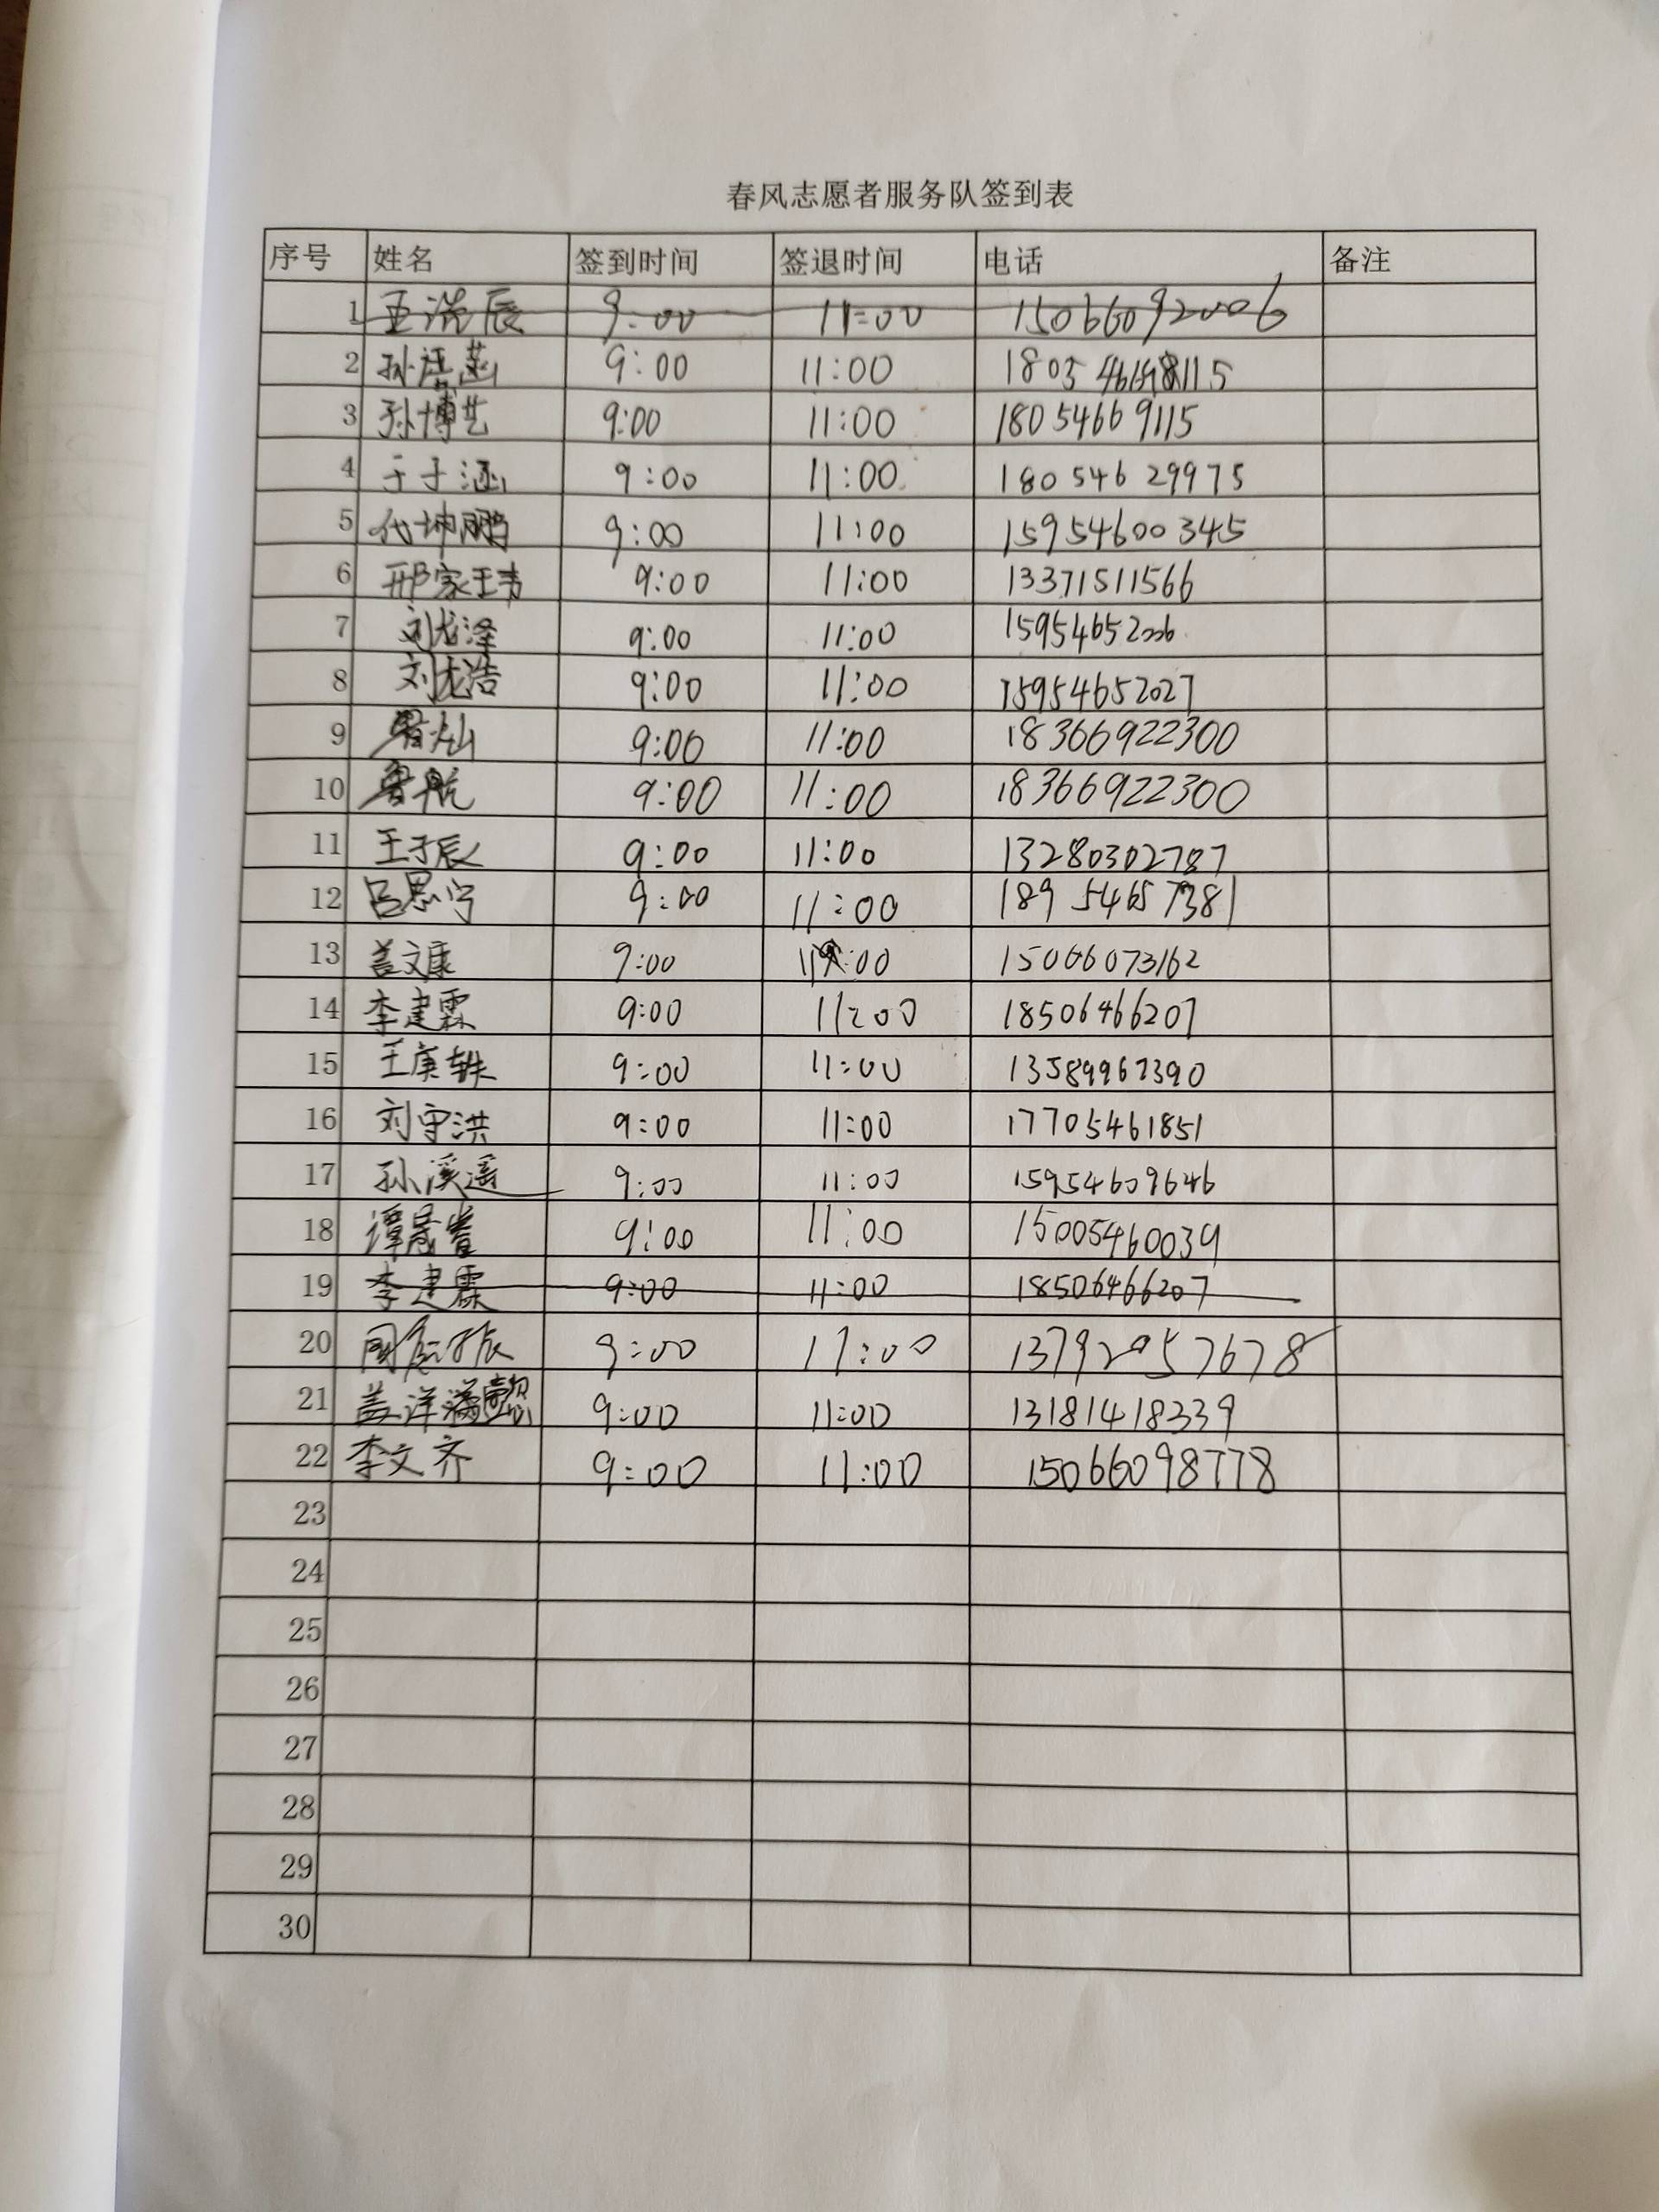 春风志愿者服务队签到表
序号 姓名 签到时间 签退时间 电话 备注
1 王浩辰 9:00 11:00 15066092006
2 孙 9:00 11:00
3 孙博艺 9:00 11:00 18054669115
4 于子涵 9:00 11:00 18054629975
5 代坤鹏 9:00 11:00 15954600345
6 邢家玮 9:00 11:00 13371511566
7 刘龙泽 9:00 11:00 15954652006
8 刘龙浩 9:00 11:00 15954652027
9 鲁灿 9:00 11:00 18366922300
10 鲁航 9:00 11:00 18366922300
11 王子辰 9:00 11:00 13280302787
12 吕思宁 9:00 11:00 18954657381
13 盖文康 9:00 11:00 15066073162
14 李建霖 9:00 11:00 18506466207
15 王庚轶 9:00 11:00 13589967390
16 刘守洪 9:00 11:00 17705461851
17 孙溪遥 9:00 11:00 15954609646
18 谭晟睿 9:00 11:00 15005460039
19 李建霖 9:00 11:00 18506466207
20 9:00 11:00 13792057678
21 盖洋懿 9:00 11:00 13181418339
22 李文齐 9:00 11:00 15066098778
23
24
25
26
27
28
29
30